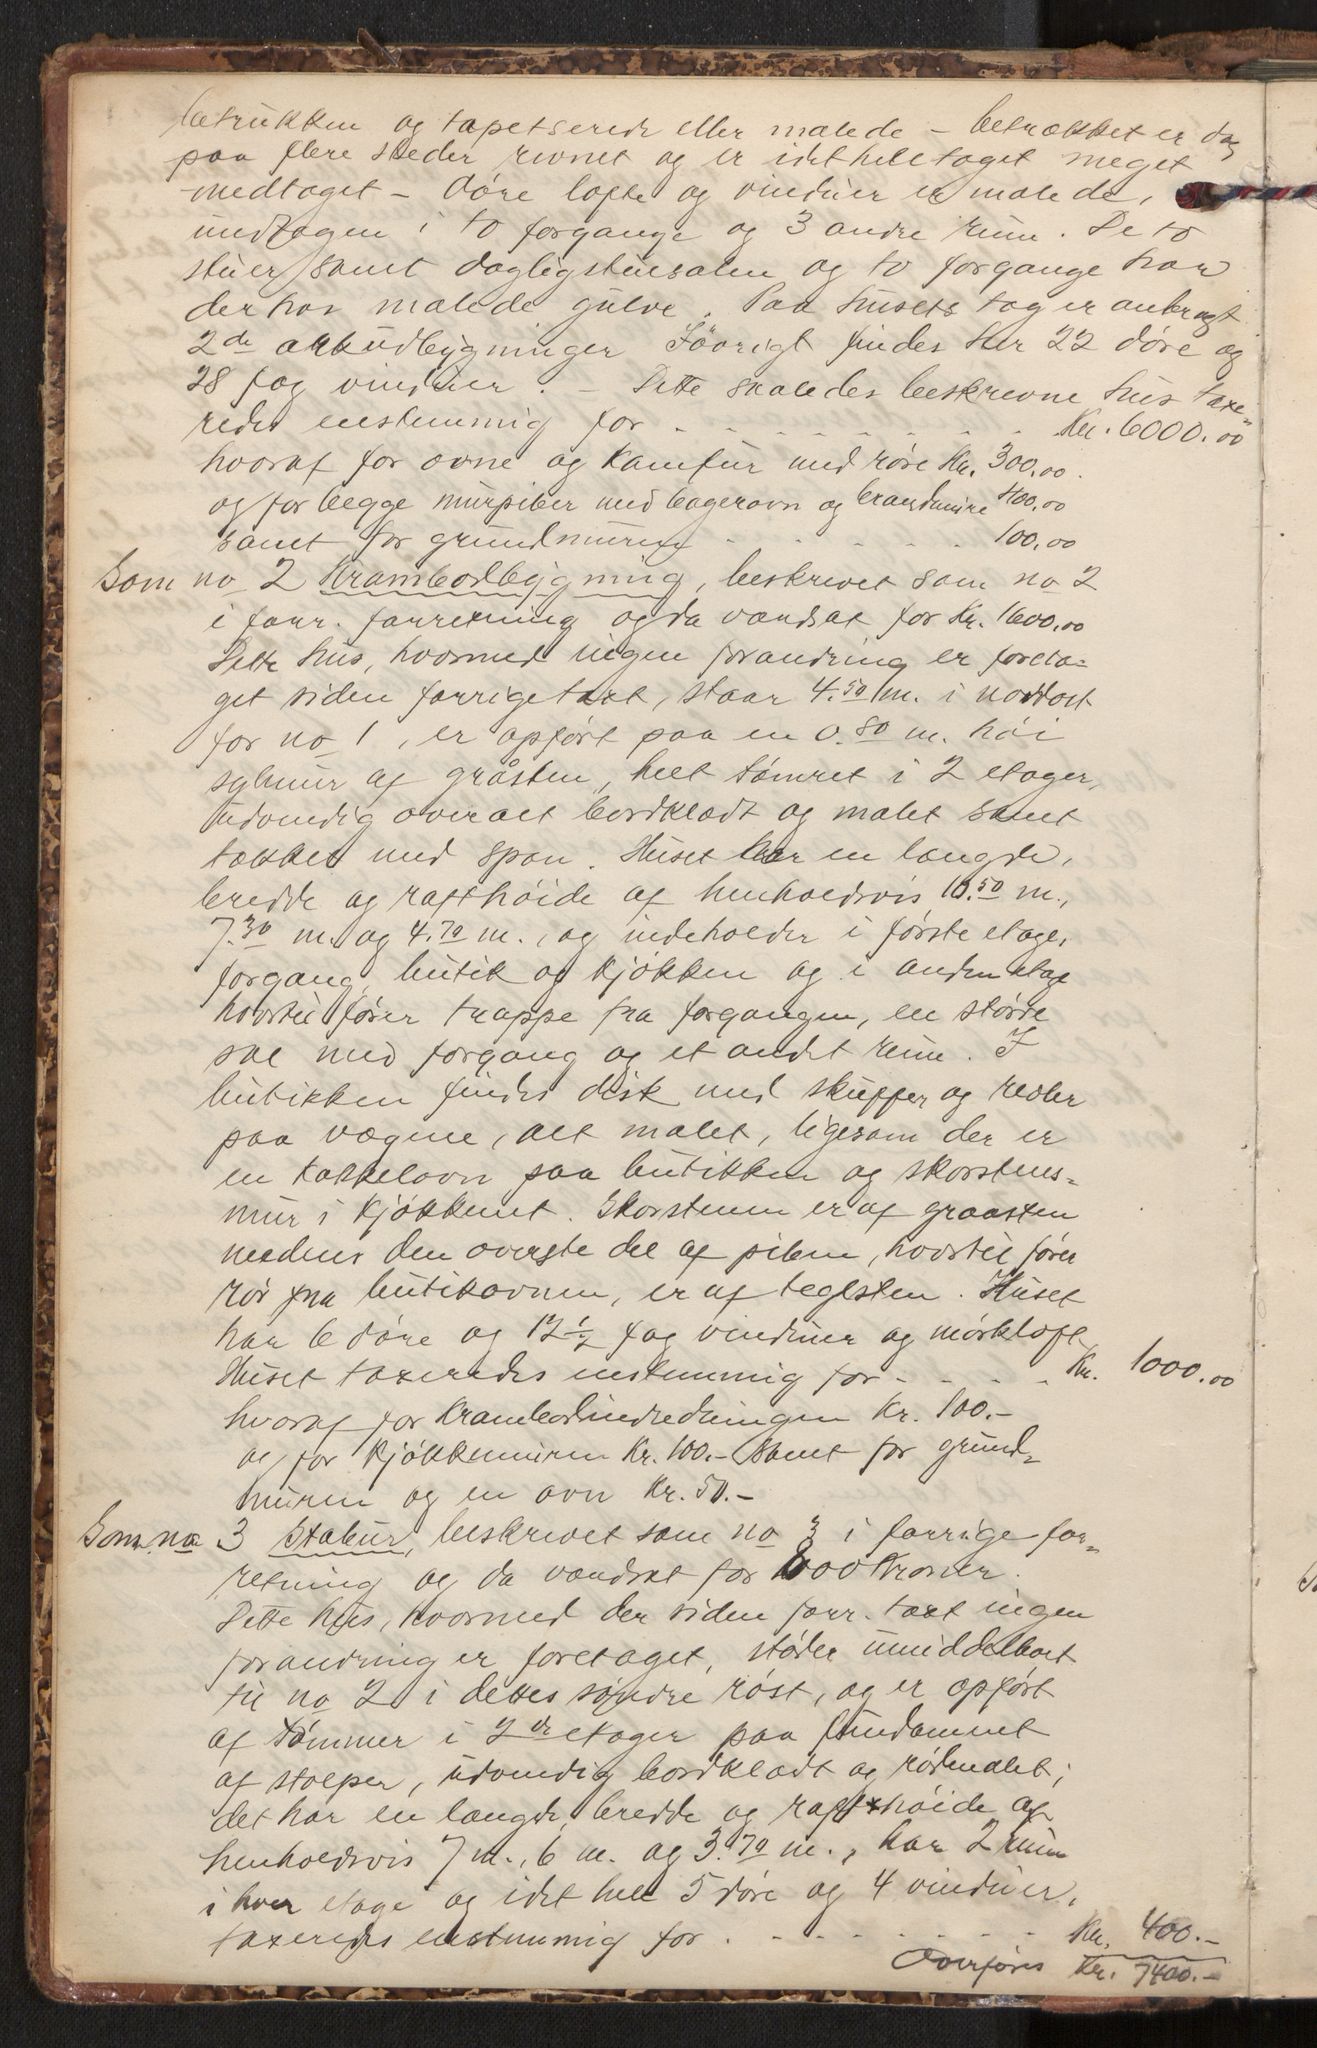 betrukken og tapetserede eller malede – betrækket er dog
paa flere steder revnet og er idetheletaget meget
medtaget – døre lofte og vinduer er malede,
undtagen i to forgange og 3 andre rum. De to
stuer samt dagligstuesalen og to forgange har
derhos malede gulve. Paa husets tag er anbragt
2de arkudbygninger Iøvrigt findes her 22 døre og
28 fag vinduer. – Dette saaledes beskrevne hus taxe-
redes enstemmig for - - - - - - - - Kr. 6000.00
hvoraf for ovne og Kamfur med røre Kr. 300.00.
og for begge murpiber med bagerovn og brandmure 400.00
samt for grundmuren - - - - - - 100.00
Som no 2 Krambodbygning, beskrevet som no 2
i forr. forretning og da værdsat for Kr. 1600.00
Dette hus, hvormed ingen forandring er foreta-
get siden forrigetaxt, staar 4.50 m. i nordost
for no 1, er opført paa en 0.80 m. høi
sylmur af gråsten, helt tømret i 2 etager,
udvendig overalt bordklædt og malet samt
tækket med spon. Huset har en længde,
bredde og rafthøide af henholdsvis 10.50 m.,
7.30 m. og 4.70 m., og indeholder i første etage,
forgang, butik og kjøkken og i anden etage
hvortil fører trappe fra forgangen, en større
sal med forgang og et andet rum. I
butikken findes disk med skuffer og reoler
paa vægene, alt malet, ligesom der er
en kakkelovn paa butikken og skorstens-
mur i kjøkkenet. Skorstenen er af graasten
medens den øverste del af piben, hvortil fører
rør fra butikovnen, er af teglsten. Huset
har 6 døre og 12 1/2 fag vinduer og mørkloft
Huset taxeredes enstemmig for - - - - Kr. 1000.00
hvoraf for Krambodindredningen Kr. 100.–
og for kjøkkenmuren Kr. 100.– samt for grund-
muren og en ovn Kr. 50.–
Som no 3 Stabur, beskrevet som no 3 i forrige for-
retning og da værdsat for 600 Kroner.
Dette hus, hvormed der siden forr. taxt ingen
forandring er foretaget, støder umiddelbart
til no 2 i dettes søndre røst, og er opført
af tømmer i 2de etager paa fundament
af stolper, udvendig bordklædt og rødmalet;
det har en længde, bredde og rafthøide af
henholdsvis 7 m., 6 m. og 3.70 m., har 2 rum
i hver etage og idet hele 5 døre og 4 vinduer,
taxeredes enstemmig for - - - - - - - - Kr. 400.–
Overføres Kr. 7400.–